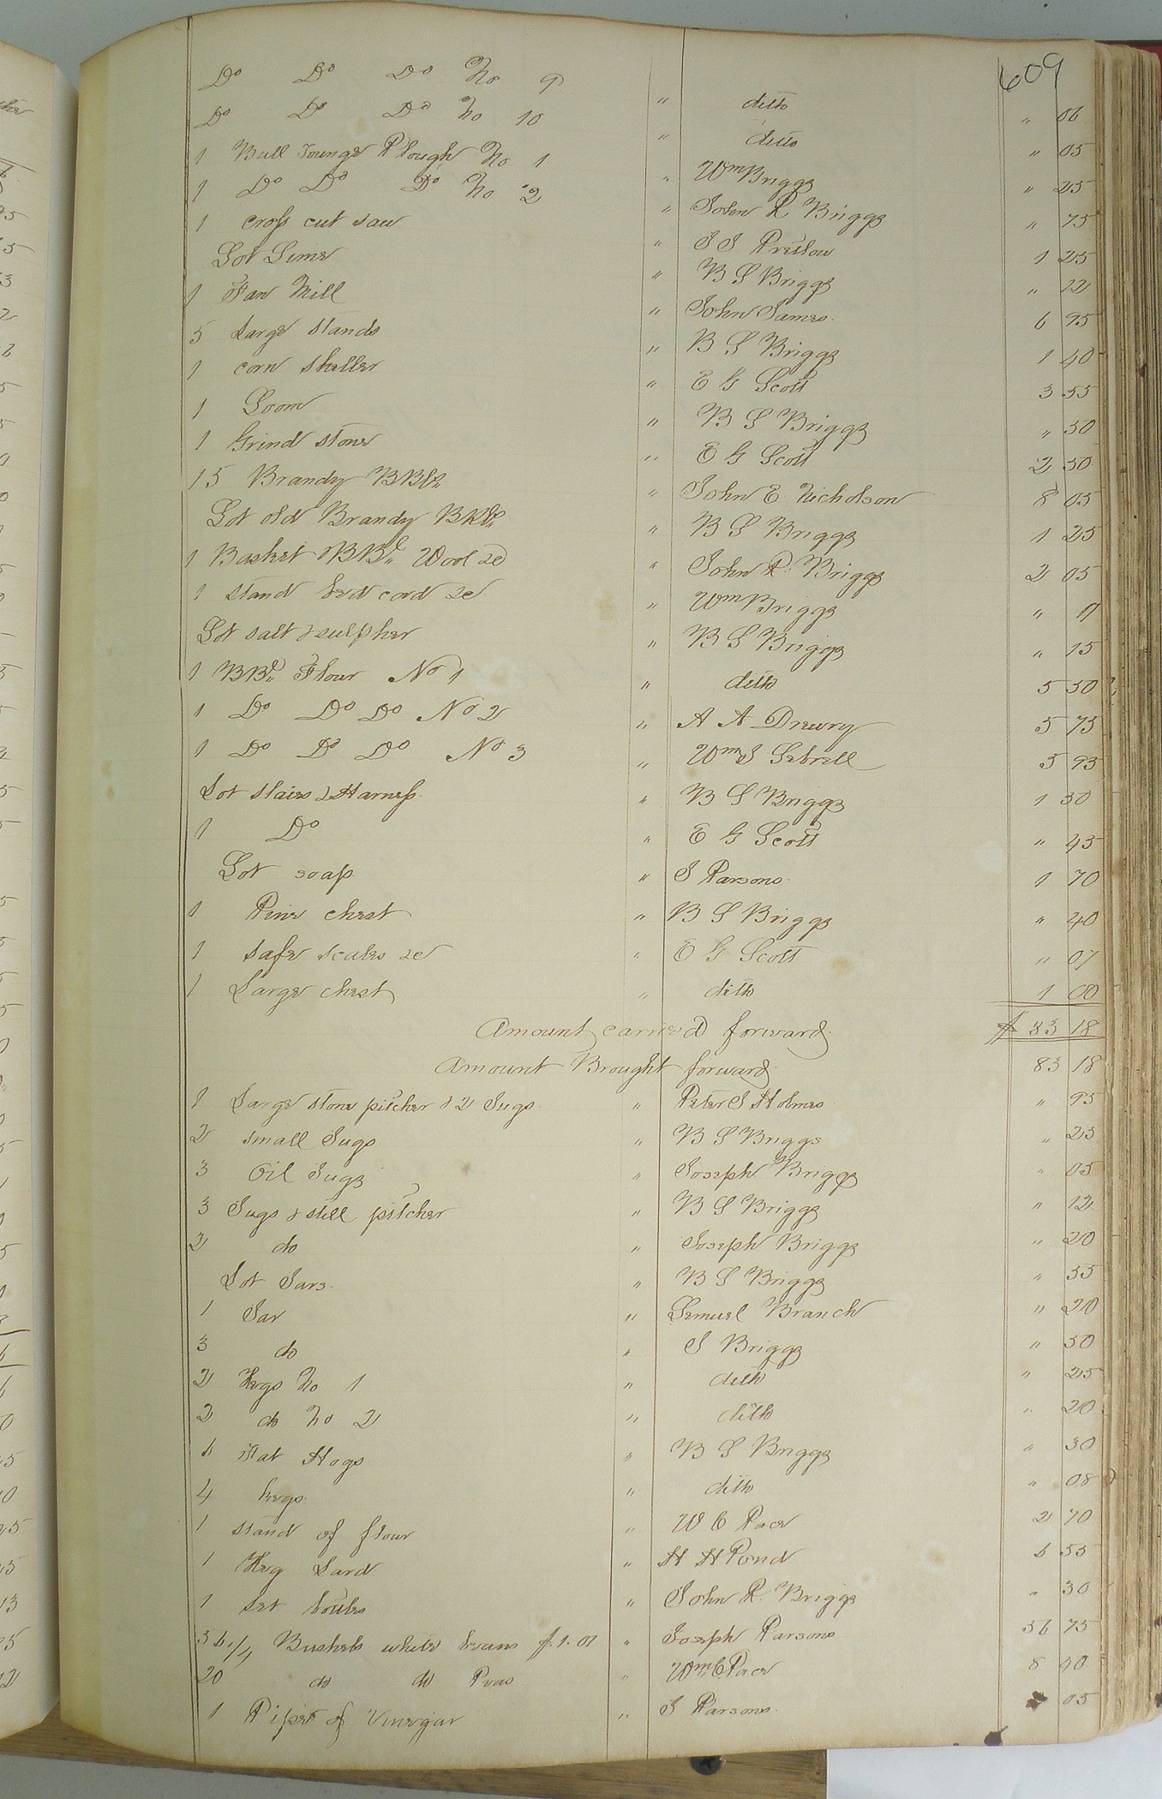 609
Do Do Do No 9 " ditto " 06
Do Do Do No 10 " ditto " 05
1 Bull Tounge Plough No 1 " Wm Briggs " 25
1 Do Do Do No 2 " John R Briggs " 75
1 cross cut saw " J J Prettow 1 25
Lot Lime " B S Briggs " 12
1 Fan Mill " John James 6 95
5 Large stands " B S Briggs 1 40
1 corn sheller " E G Scott 3 55
1 Loom " B S Briggs " 50
1 Grind stone " E G Scott 2 50
15 Brandy BBls " John E Nicholson 8 05
Lot old Brandy BBls " B S Briggs 1 25
1 Basket BBl Wool &c " John R Briggs 2 05
1 stand bed cord &c " Wm Briggs "
Lot salt & sulpher " B S Briggs " 15
1 BBl Flour No 1 " ditto 5 50
1 Do Do Do No 2 " A A Drewry 5 75
1 Do Do Do No 3 " Wm J Sebrell 5 95
Lot slaies & Harness " B S Briggs 1 50
1 Do " E G Scott " 45
Lot soap " S Parsons 1 70
1 Pine chest " B S Briggs " 40
1 safe scales &c " E G Scott " 07
1 Large chest " ditto 1 00
Amount carried forward $ 83 18
Amount Brought forward 83 18
1 Large stone pitcher & 2 Jugs " Peter J Holmes " 95
2 small Jugs " B S Briggs " 25
3 Oil Jugs " Joseph Briggs " 05
3 Jugs & still pitcher " B S Briggs " 12
2 do " Joseph Briggs " 20
Lot Jars " B S Briggs " 55
1 Jar " Lemuel Branch " 20
3 do " S Briggs " 50
2 Kegs No 1 " ditto " 25
2 do No 2 " ditto " 20
Fat Hogs " B S Briggs " 30
4 kegs " ditto " 08
1 stand of flour " W C Pace 2 70
1 Keg Lard " H H Pond 6 55
1 Set " John R Briggs " 30
56 1/4 Bushels white beans $1.01 " Joseph Parsons 56 75
20 do do Peas " Wm C Pace 8 40
1 of Vinegar " S Parsons 05